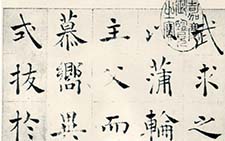 武求之
以蒲輪
主父而
慕嚮異
式拔於